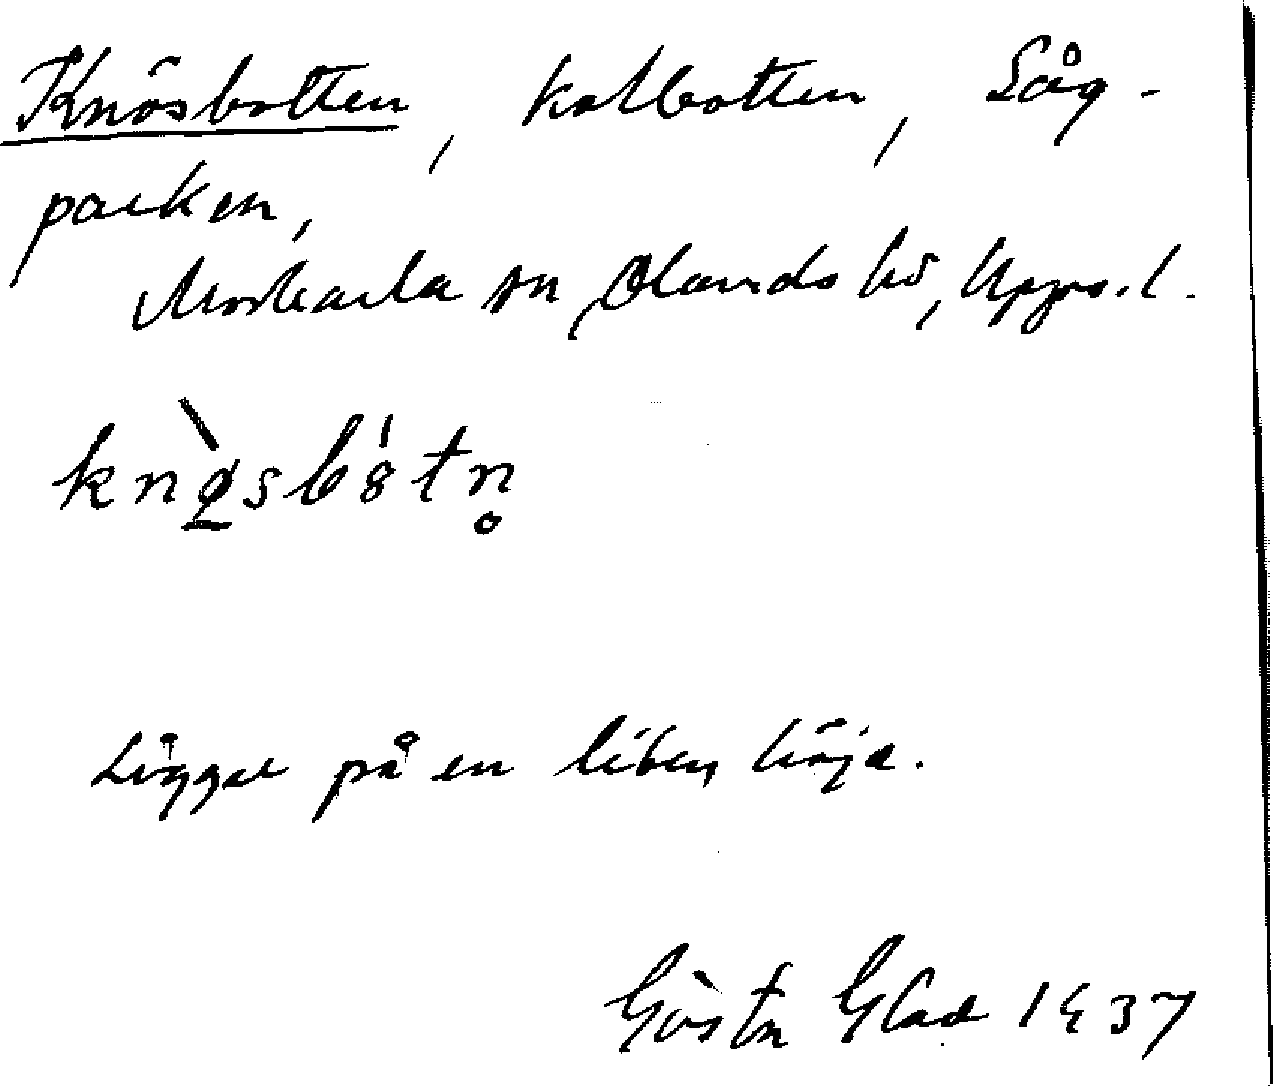 Knösbotten, kolbotten, Såg-
parken,
Morkarla sn Olands hd, Upps. l.
knø̀sbòtn̥
Ligger på en liten höjd.
Gösta Glad 1937